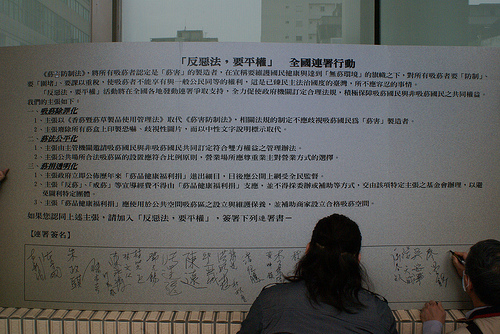 「反惡法，要平權」　全國連署行動
《菸害防制法》，將所有吸菸者認定是「菸害」的製造者，在宣稱要維護國民健康與達到「無菸環境」的旗幟之下，對所有吸菸者要「防制」、
要「圍堵」，要課以重稅，使吸菸者不能享有與一般公民同等的權利，這是已臻民主法治國度的臺灣，所不應容忍的事情。
「反惡法，要平權」活動將在全國各地發動連署爭取支持，全力促使政府機關訂定合理法規，積極保障吸菸國民與非吸菸國民之共同權益。
我們的主張如下。
一、吸菸除罪化
1．主張以《香菸暨菸草製品使用管理法》取代《菸害防制法》，相關法規的制定不應歧視吸菸國民為「菸害」製造者。
2．主張廢除所有菸盒上印製恐嚇、歧視性圖片，而以中性文字說明標示取代。
二、菸法公平化
1．主張由主管機關邀請吸菸國民與非吸菸國民共同訂定符合雙方權益之管理辦法。
2．主張公共場所合法吸菸區的設置應符合比例原則，營業場所應尊重業主對營業方式的選擇。
三、菸捐透明化
1．主張政府立即公佈歷年來「菸品健康福利捐」進出細目，日後應公開上網受全民監督。
2．主張「反菸」、「戒菸」等宣導經費不得由「菸品健康福利捐」支應，並不得採委辦或補助等方式，交由該項特定主張之基金會辦理，以避
免圖利特定團體。
3．主張「菸品健康福利捐」應使用於公共空間吸菸區之設立與維護保養，並補助商家設立合格吸菸空間。
如果您認同上述主張，請加入「反惡法，要平權」，簽署下列連署書－
【連署簽名】